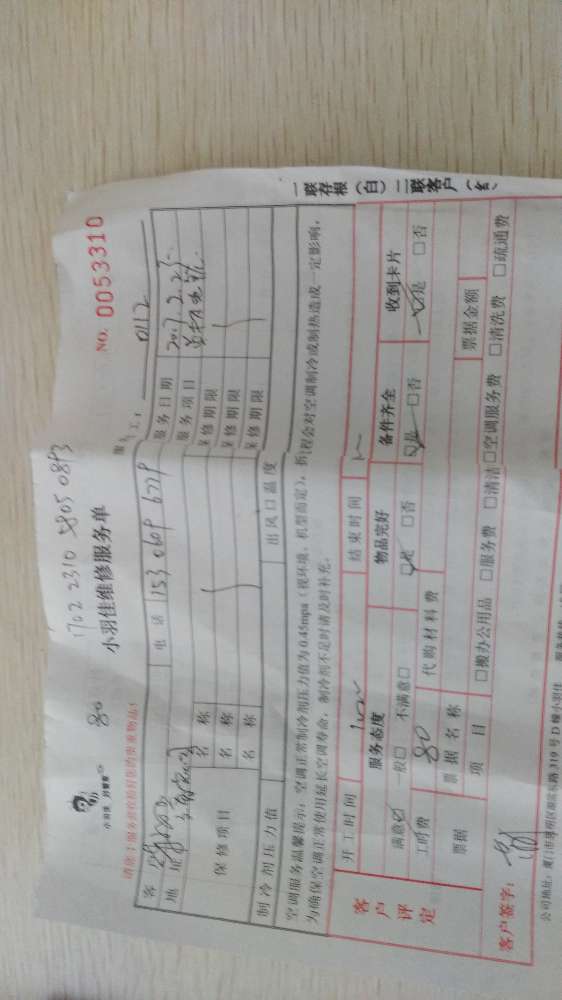 1702 2310 5805 0893
80
小羽佳 好管家
小羽佳维修服务单
NO. 0053310
请您于服务前收拾好您的贵重物品!
0112
客
电话 153 0609 6229
服务日期 2017.2.25
地址
服务项目
保修项目
名称
保修期限
名称
保修期限
名称
保修期限
制冷剂压力值
出风口温度
空调服务温馨提示:空调正常制冷剂压力值为0.45mpa(视环境、机型而定),拆 程会对空调制冷或制热造成一定影响,
为确保空调正常使用延长空调寿命,制冷剂不足时请及时补充。
客户评定
开工时间
结束时间
服务态度
物品完好
备件齐全
收到卡片
满意☑ 一般□ 不满意□
☑是 □否
☑是 □否
☑是 □否
工时费 80
代购材料费
票据
票据名称
票据金额
项目
□搬办公用品 □服务费 □清洁 □空调服务费 □清洗费 □疏通费
客户签字:
一联存根(白)二联客户(